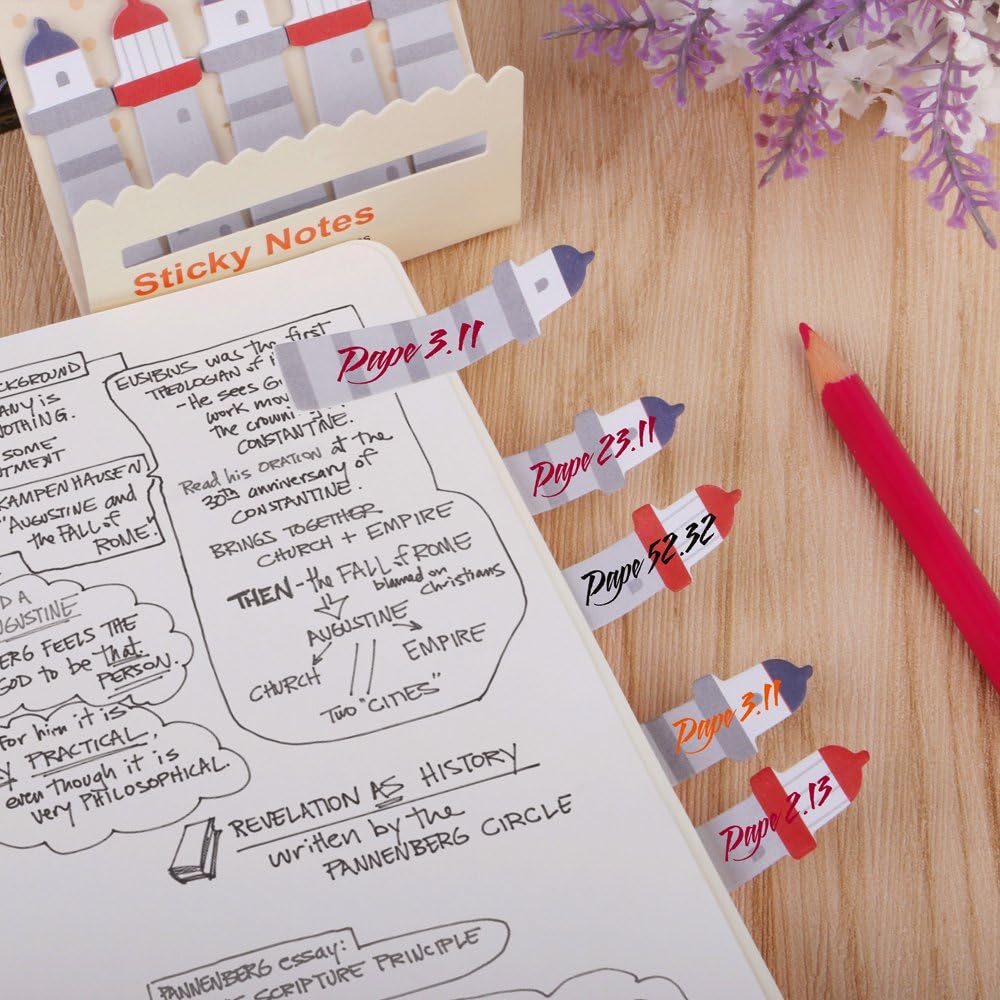 Sticky Notes
CKGROUND
ANY is
NOTHING.
SOME
TMENT
KAMPENHAUSEN
"AUGUSTINE and
the FALL of
ROME."
D A
GUSTINE
ERG FEELS THE
GOD to be that
PERSON.
For him it is
PRACTICAL,
even though it is
very PHILOSOPHICAL.
EUSIBIUS was the first
THEOLOGIAN of
-He sees
work mov
the crowni
CONSTANTINE.
Read his ORATION at the
30th anniversary of
CONSTANTINE.
BRINGS TOGETHER
CHURCH + EMPIRE
THEN - the FALL of ROME
blamed on
christians
AUGUSTINE
CHURCH
EMPIRE
TWO "CITIES"
REVELATION AS HISTORY
written by the
PANNENBERG CIRCLE
PANNENBERG essay:
SCRIPTURE PRINCIPLE
Pape 3.11
Pape 23.11
Pape 52.32
Pape 3.11
Pape 2.13